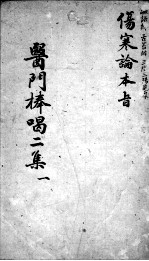 傷寒論本旨
醫門棒喝二集
一